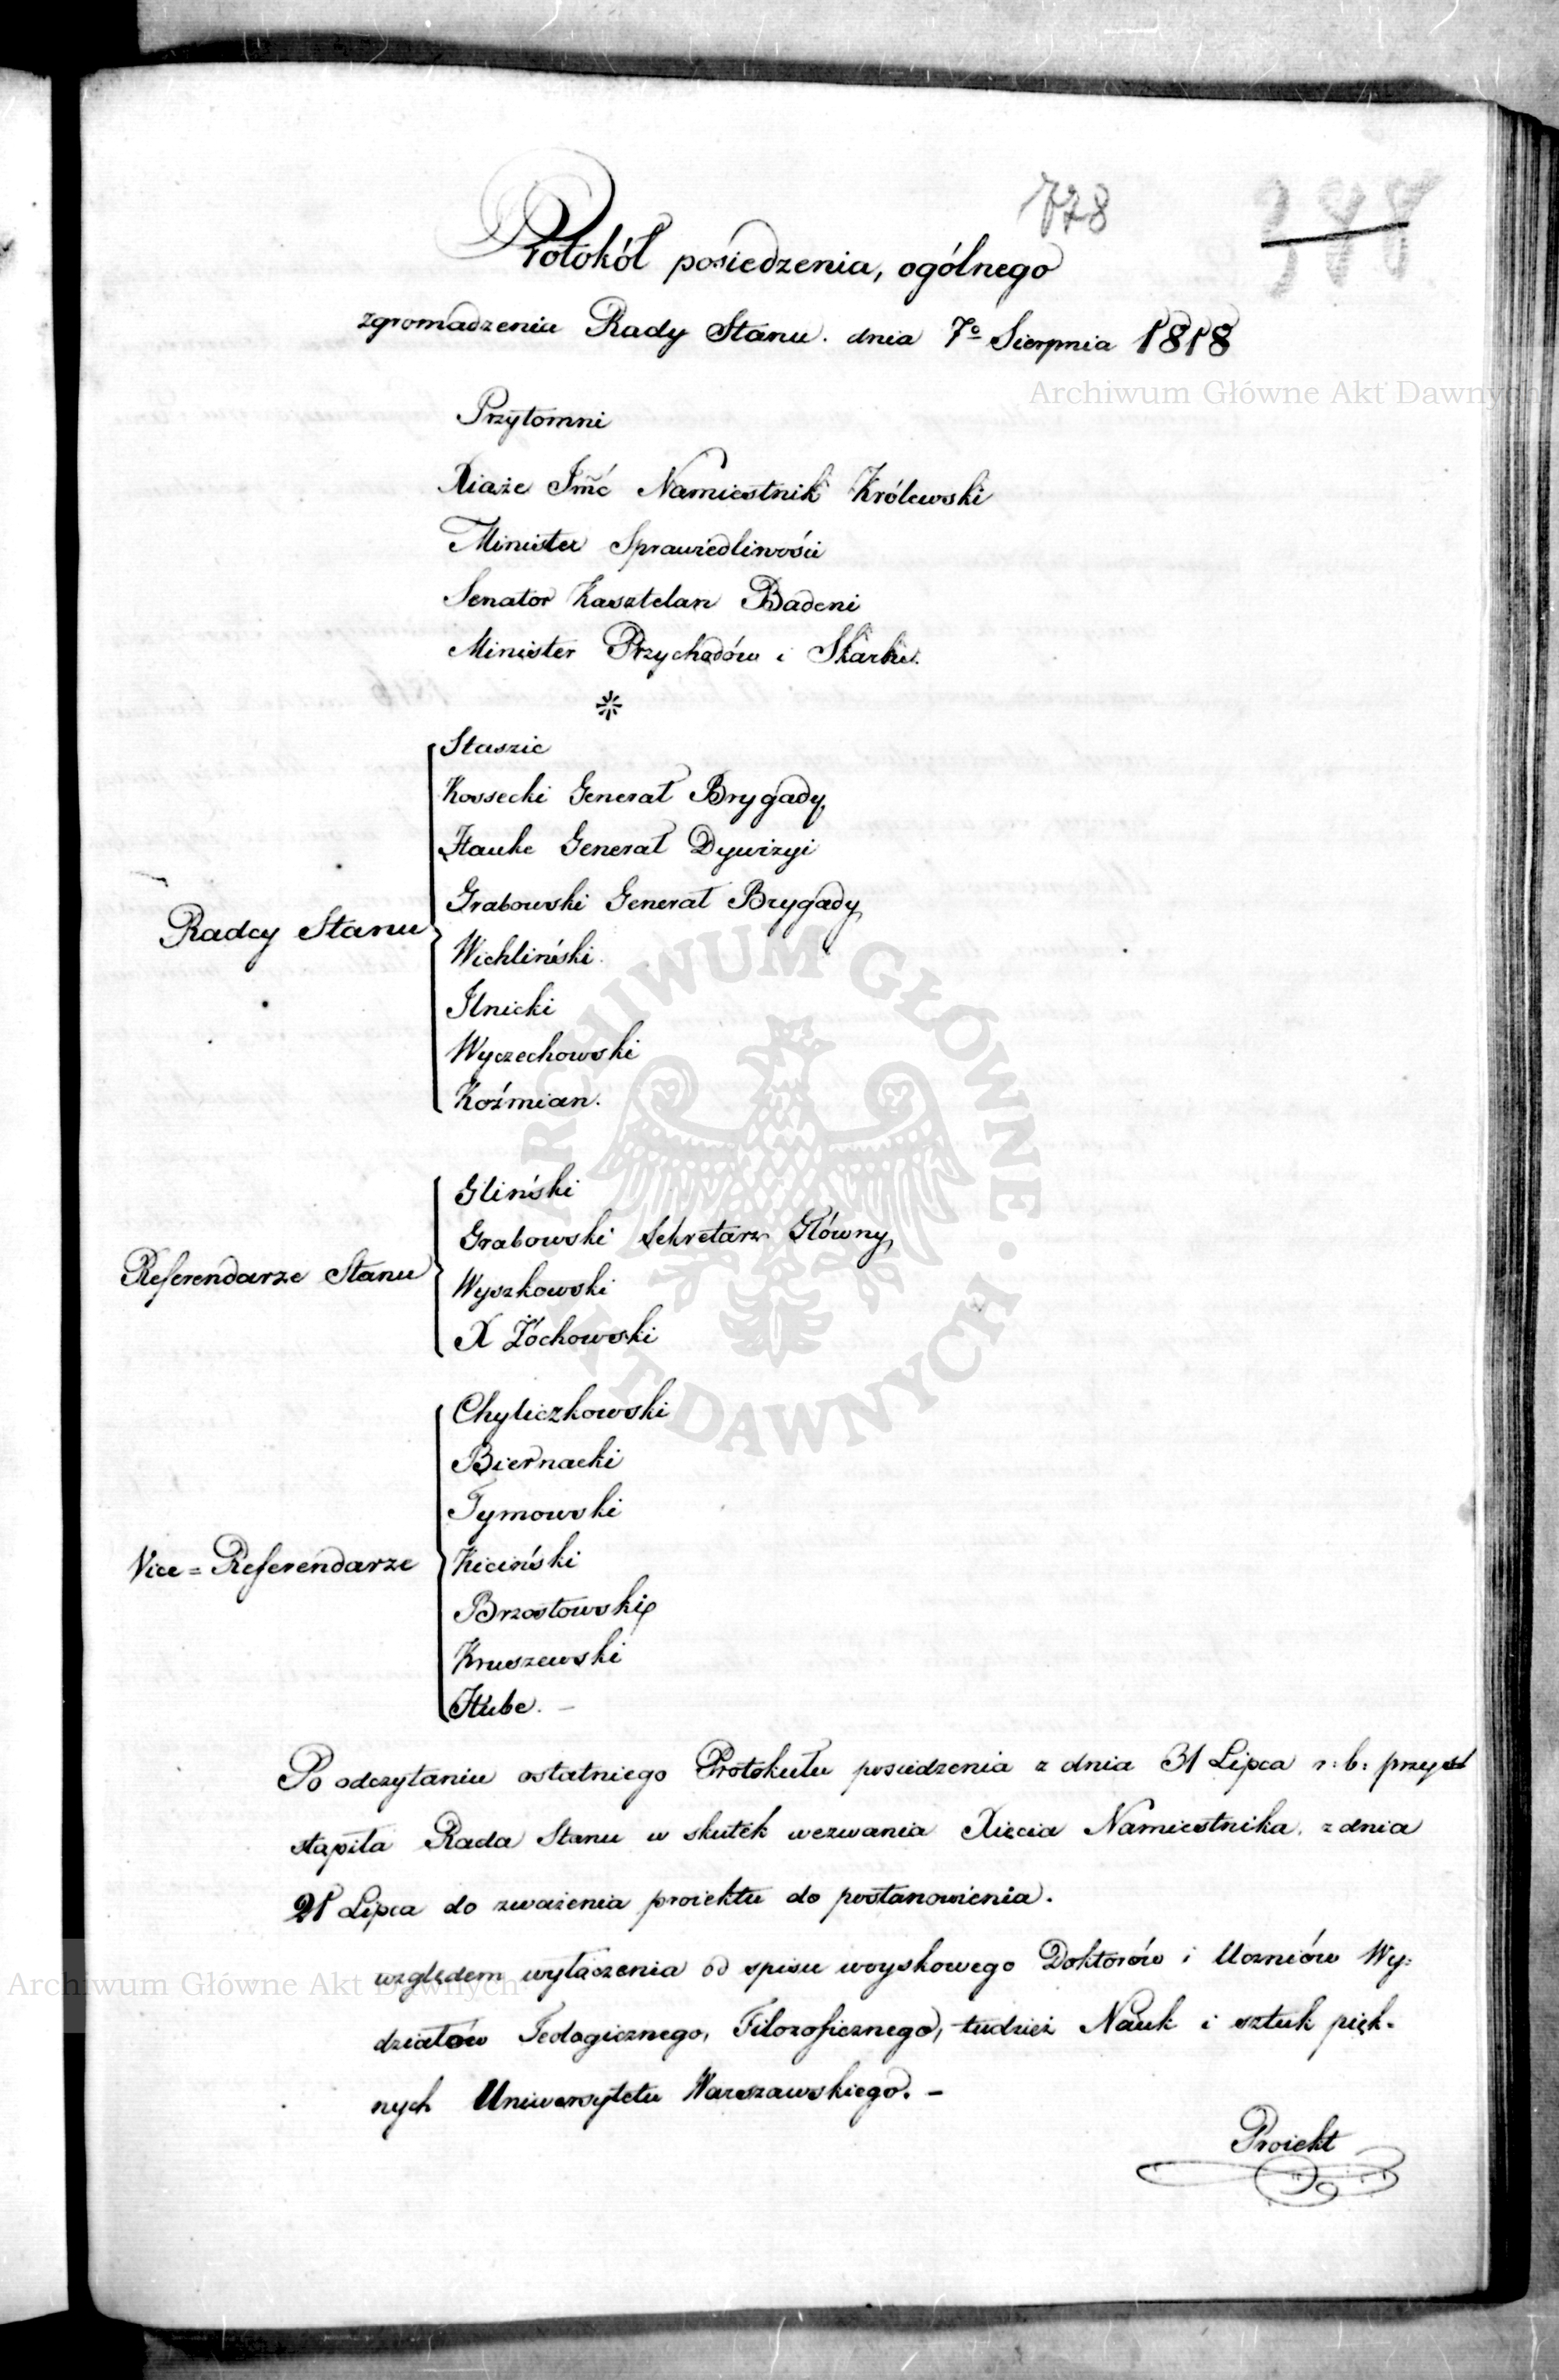 778
388
Protokół posiedzenia, ogólnego
zgromadzenia Rady Stanu. dnia 7º Sierpnia 1818
Archiwum Główne Akt Dawnych
Przytomni
Xiąże Jmć Namiestnik Królewski
Minister Sprawiedliwości
Senator Kasztelan Badeni
Minister Przychodów i Skarbu.
Radcy Stanu
Staszic
Kossecki Generał Brygady,
Hauke Generał Dywizyi
Grabowski Generał Brygady,
Wichliński.
Ilnicki
Wyczechowski
Koźmian.
Referendarze Stanu
Gliński
Grabowski Sekretarz Główny,
Wyszkowski
X Żóchowski
Vice=Referendarze
Chyliczkowski
Biernacki
Tymowski
Kiciński
Brzostowski
Kruszewski
Hube. –
ARCHIWUM GŁÓWNE · AKT DAWNYCH ·
Po odczytaniu ostatniego Protokułu posiedzenia z dnia 31 Lipca r: b: przy
stąpiła Rada Stanu w skutek wezwania Xięcia Namiestnika, z dnia
21 Lipca do zważenia proiektu do postanowienia.
względem wyłączenia od spisu woyskowego Doktorów i Uczniów Wy=
działów Teologicznego, Filozoficznego, tudzież Nauk i sztuk pięk-
nych Uniwersytetu Warszawskiego. –
Archiwum Główne Akt Dawnych
Proiekt